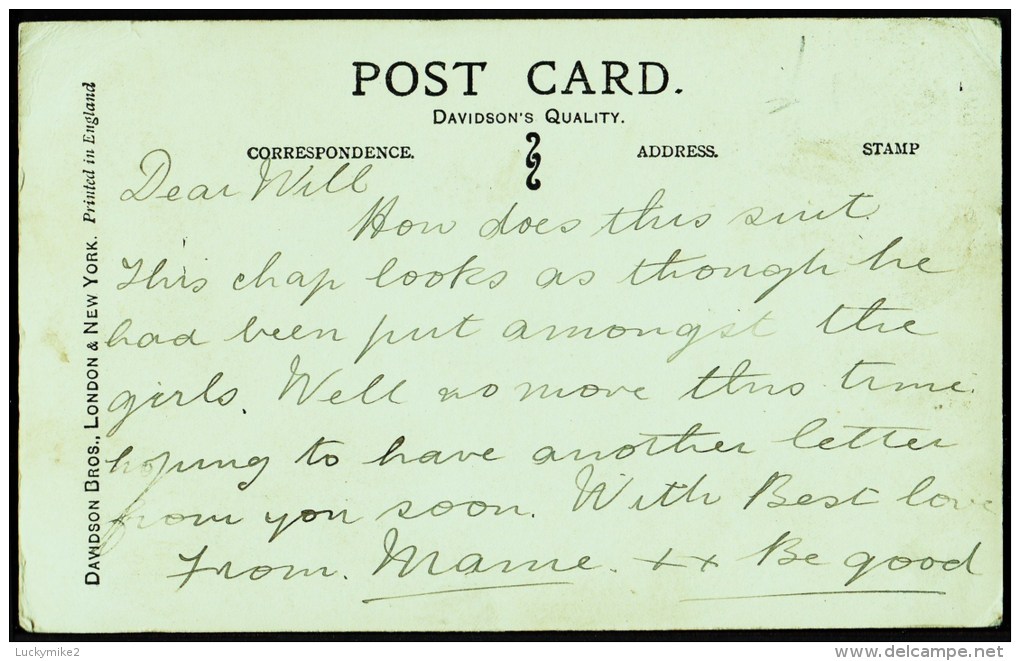 POST CARD.
DAVIDSON'S QUALITY.
CORRESPONDENCE. ADDRESS. STAMP
DAVIDSON BROS., LONDON & NEW YORK. Printed in England
Dear Will
How does this suit.
This chap looks as though he
had been put amongst the
girls. Well no more this time.
hoping to have another letter
from you soon. With Best love
From. Mame. xx Be good
Luckymike2
www.delcampe.net